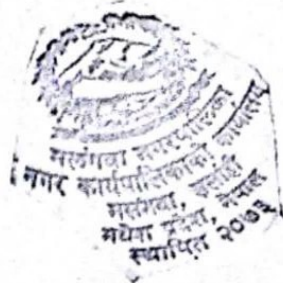 मलंगवा नगरपालिका
नगर कार्यपालिकाको कार्यालय
मलंगवा, सर्लाही
मधेश प्रदेश, नेपाल
स्थापित २०७३